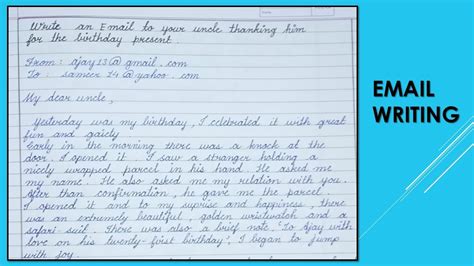 Write an Email to your uncle thanking him
for the birthday present.
From: ajay13@gmail.com
To: sameer14@yahoo.com
My dear uncle,
Yesterday was my birthday, I celebrated it with great
fun and gaiety.
Early in the morning there was a knock at the
door. I opened it. I saw a stranger holding a
nicely wrapped parcel in his hand. He asked me
my name. He also asked me my relation with you.
After than confirmation, he gave me the parcel.
I opened it and to my suprise and happiness, there
was an extremely beautiful, golden wristwatch and a
safari suit. There was also a brief note "To Ajay with
love on his twenty-first birthday", I began to jump
with joy.
EMAIL
WRITING